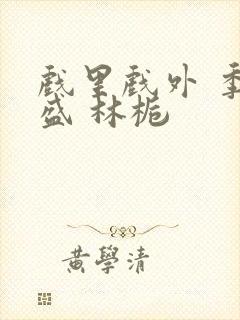 戲里戲外 季
盛 林栀
黄學清